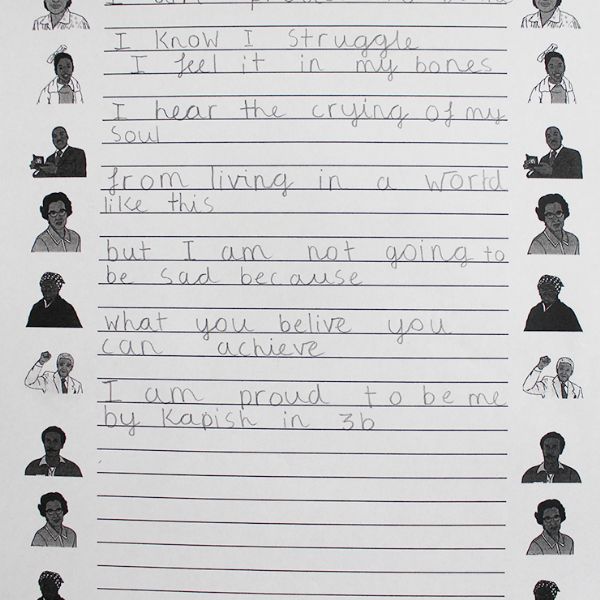 I am proud to be me
I know I struggle
I feel it in my bones
I hear the crying of my
soul
from living in a world
like this
but I am not going to
be sad because
what you belive you
can achieve
I am proud to be me
by Kapish in 3b